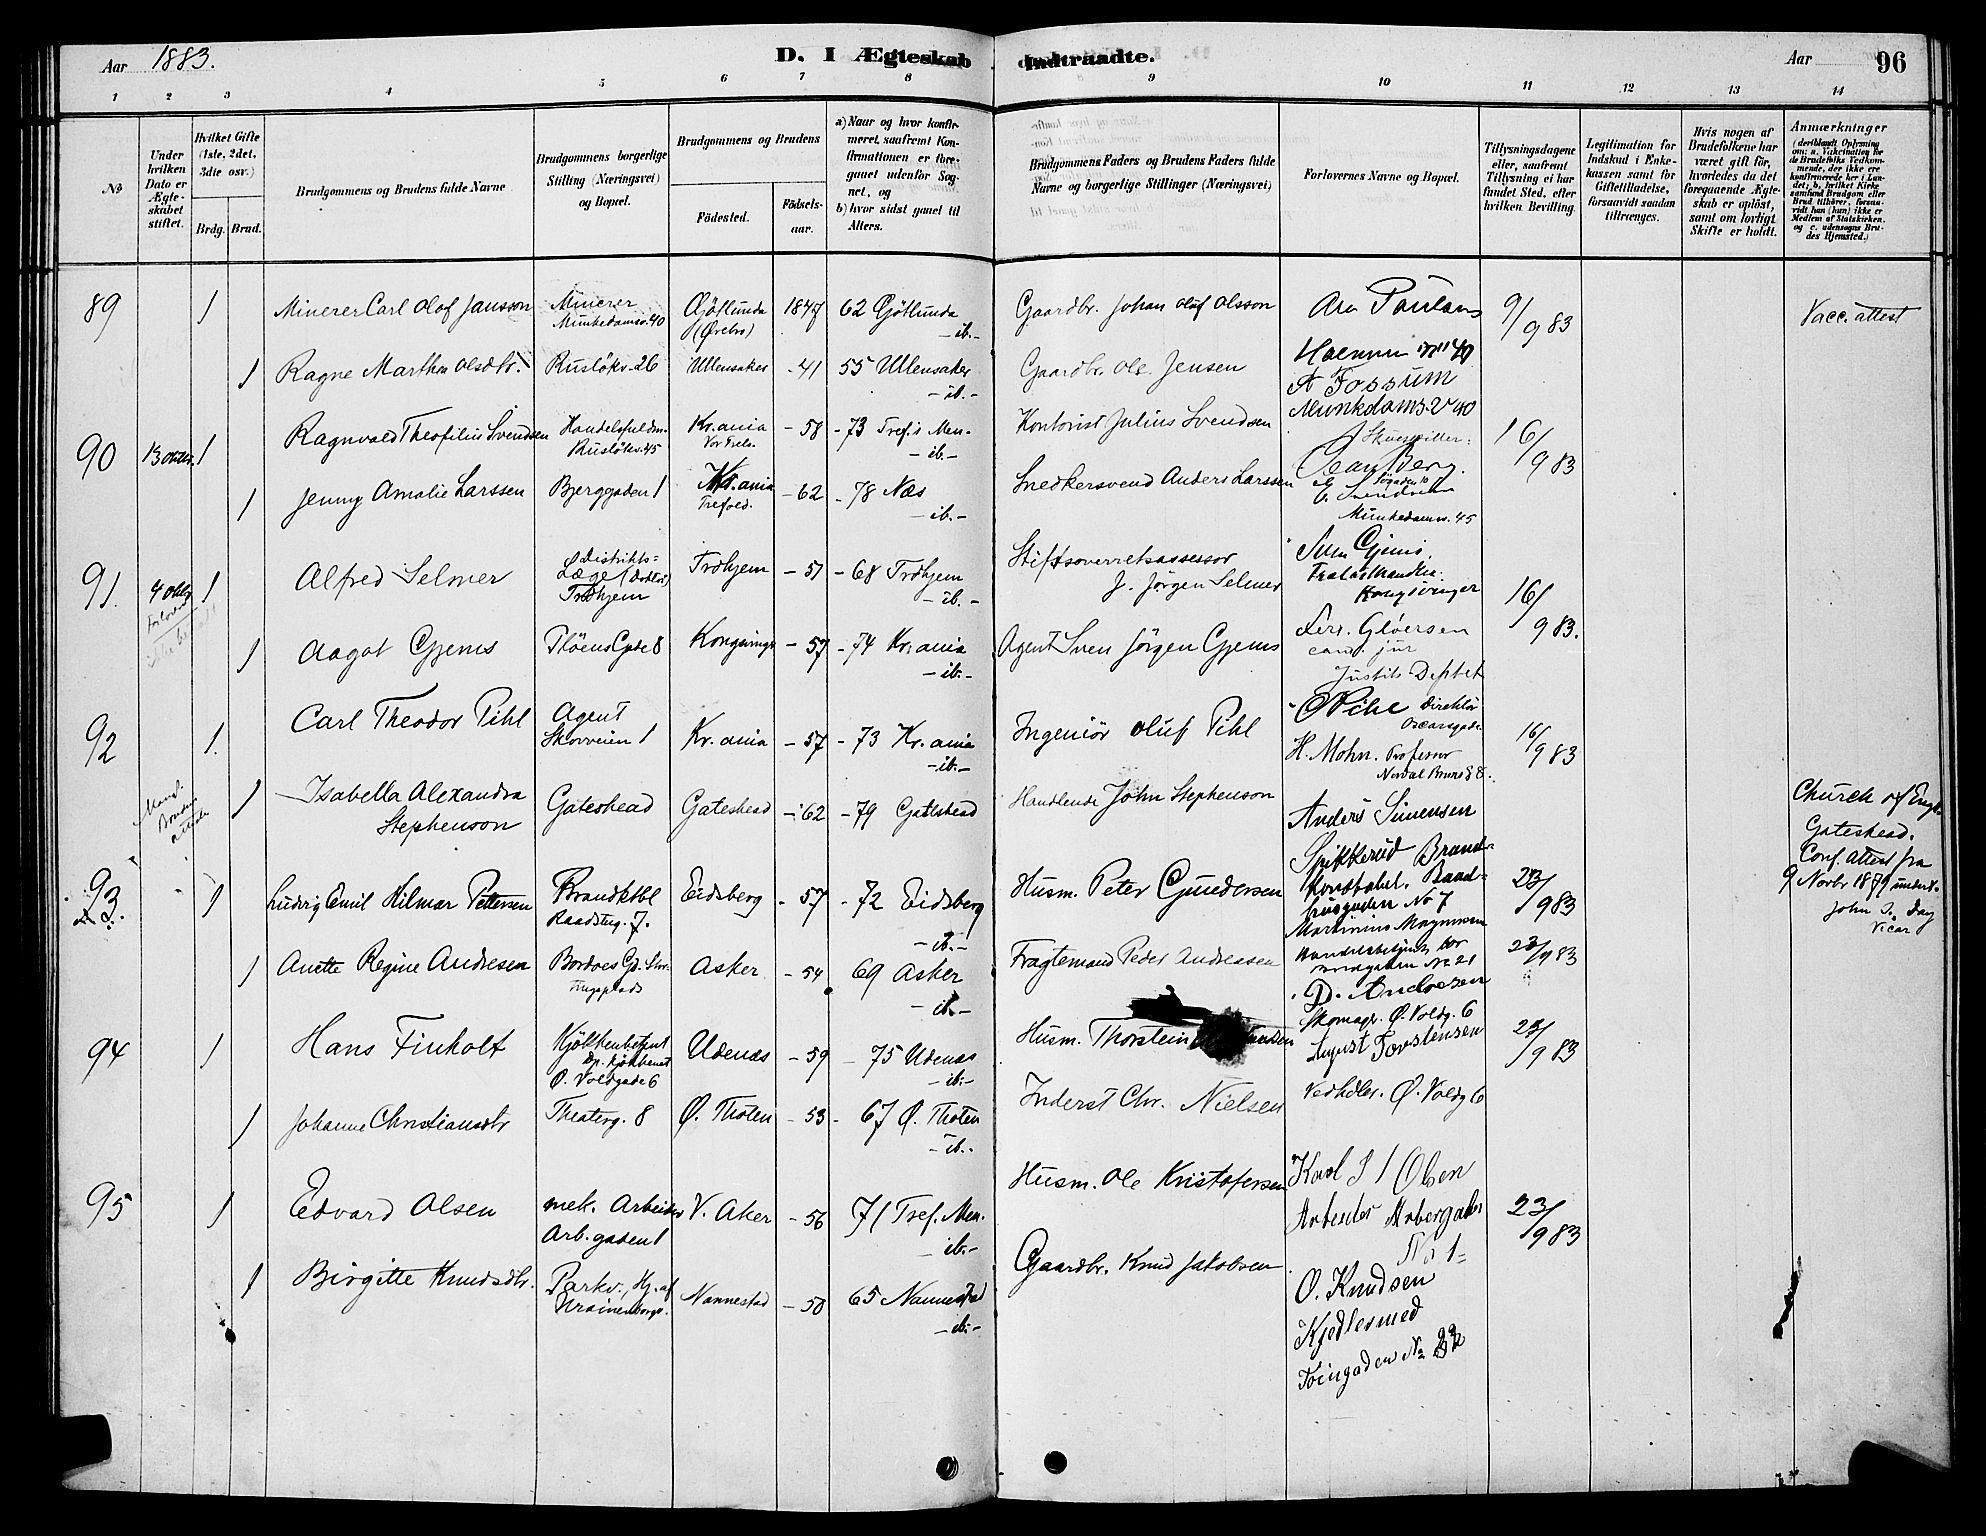 Aar 1883.
D. I Ægteskab Indtraadte.
Aar 96
1 2 3 4 5 6 7 8 9 10 11 12 13 14
No
Under hvilken Dato er Ægteskabet stiftet.
Hvilket Gifte (1ste, 2det, 3die osv.)
Brdg. Brud.
Brudgommens og Brudens fulde Navne
Brudgommens borgerlige Stilling (Næringsvei) og Bopæl.
Brudgommens og Brudens
Fødested.
Fødselsaar.
a) Naar og hvor konfirmeret, saafremt Konfirmationen er foregaaet udenfor Sognet, og
b) hvor sidst gaaet til Alters.
Brudgommens Faders og Brudens Faders fulde Navne og borgerlige Stillinger (Næringsvei)
Forlovernes Navne og Bopæl.
Tillysningsdagene eller, saafremt Tillysning ei har fundet Sted, efter hvilken Bevilling.
Legitimation for Indskud i Enkekassen samt for Giftetilladelse, forsaavidt saadan tiltrænges.
Hvis nogen af Brudefolkene har været gift før, hvorledes da det foregaaende Ægteskab er opløst, samt om lovligt Skifte er holdt.
Anmærkninger (deriblandt Oplysning om: a. Vakcination for de Brudefolks Vedkommende, der ikke ere konfirmerede her i Landet; b. hvilket Kirkesamfund Brudgom eller Brud tilhører, forsaavidt han (hun) ikke er Medlem af Statskirken, og c. udensogns Brudes Hjemsted.)
89 1 Minerer Carl Olof Jansson Minerer Munkedamsv. 40 Gjötlunda (Örebro) 1847 62 Gjötlunda -ib.- Gaardbr. Johan Olof Olsson Paulsen 9/9 83 Vacc. attest
1 Ragne Marthea Olsdtr. Rusløkv. 26 Ullensaker -41 55 Ullensaker -ib.- Gaardbr. Ole Jensen A Fossum Munkdams. V 40
90 1 Ragnvald Theofilus Svendsen Handelsfuldm. Rusløkv. 45 Kr.ania Vor Frels. -58 -73 Tref.s Men. -ib.- Kontorist Julius Svendsen Skuespiller Berg. 16/9 83
1 Jenny Amalie Larssen Bjerggaden 1 Kr.ania Trefold. -62 -78 Næs -ib.- Snedkersvend Anders Larssen Munkedamsv. 45
91. 1 Alfred Selmer Distriktslæge Trdhjem Trdhjem -51 -68 Trdhjem -ib.- Stiftsoverretsassessor J. Jørgen Selmer Gjems. Trælasthandler Kongsvinger 16/9 83.
1 Aagot Gjems Pløens Gde 8 Kongsvinger -57 -74 Kr.ania -ib.- Agent Sven Jørgen Gjems Gløersen cand. jur Justits Deptet
92 1. Carl Theodor Pihl Agent Skovveien 1 Kr.ania -57 -73 Kr.ania -ib.- Ingeniør Oluf Pihl Direktör Oscarsgade H. Mohn. Professor 16/9 83
1 Isabella Alexandra Stephenson Gateshead Gateshead -62 -79 Gateshead Handlende John Stephenson Church of Engl. Gateshead. Conf. attest fra 9 Novbr 1879 John Day Vicar
93 1 Ludvig Emil Hilmar Pettersen Brandktbl Raadstug. 7. Eidsberg -57 -72 Eidsberg -ib.- Husm. Peter Gundersen Anders Simensen Spikkerud Brandkonstabel. Raadhusgaden No 7 23/9 83
1 Anette Regine Andresen Asker -54 69 Asker -ib.- Fragtemand Peder Andreasen 23/9 83
94 1 Hans Finholt Kjøkkenbetjent Ø. Voldgade 6 Udenæs -59 -75 Udenæs -ib.- Husm. Thorstein D. Andresen Skomagr. Ø. Voldg. 6 23/9 83
1 Johanne Christiansdtr Theaterg. 8 Ø. Thoten -53 -67 Ø. Thoten -ib.- Inderst Chr. Nielsen August Torstensen Vedhdler. Ø. Voldg 6
95 1 Edvard Olsen mek. Arbeider Arb.gaden 1 V. Aker -56 71 Tref. Men. -ib.- Husm. Ole Kristofersen Olsen Arbeider No 1 23/9 83
1 Birgitte Knudsdtr. Parkv., Hj. af Uranienborgv. Nannestad -50 65 Nannestad -ib.- Gaardbr. Knud Jakobsen O. Knudsen Kjedlesmed